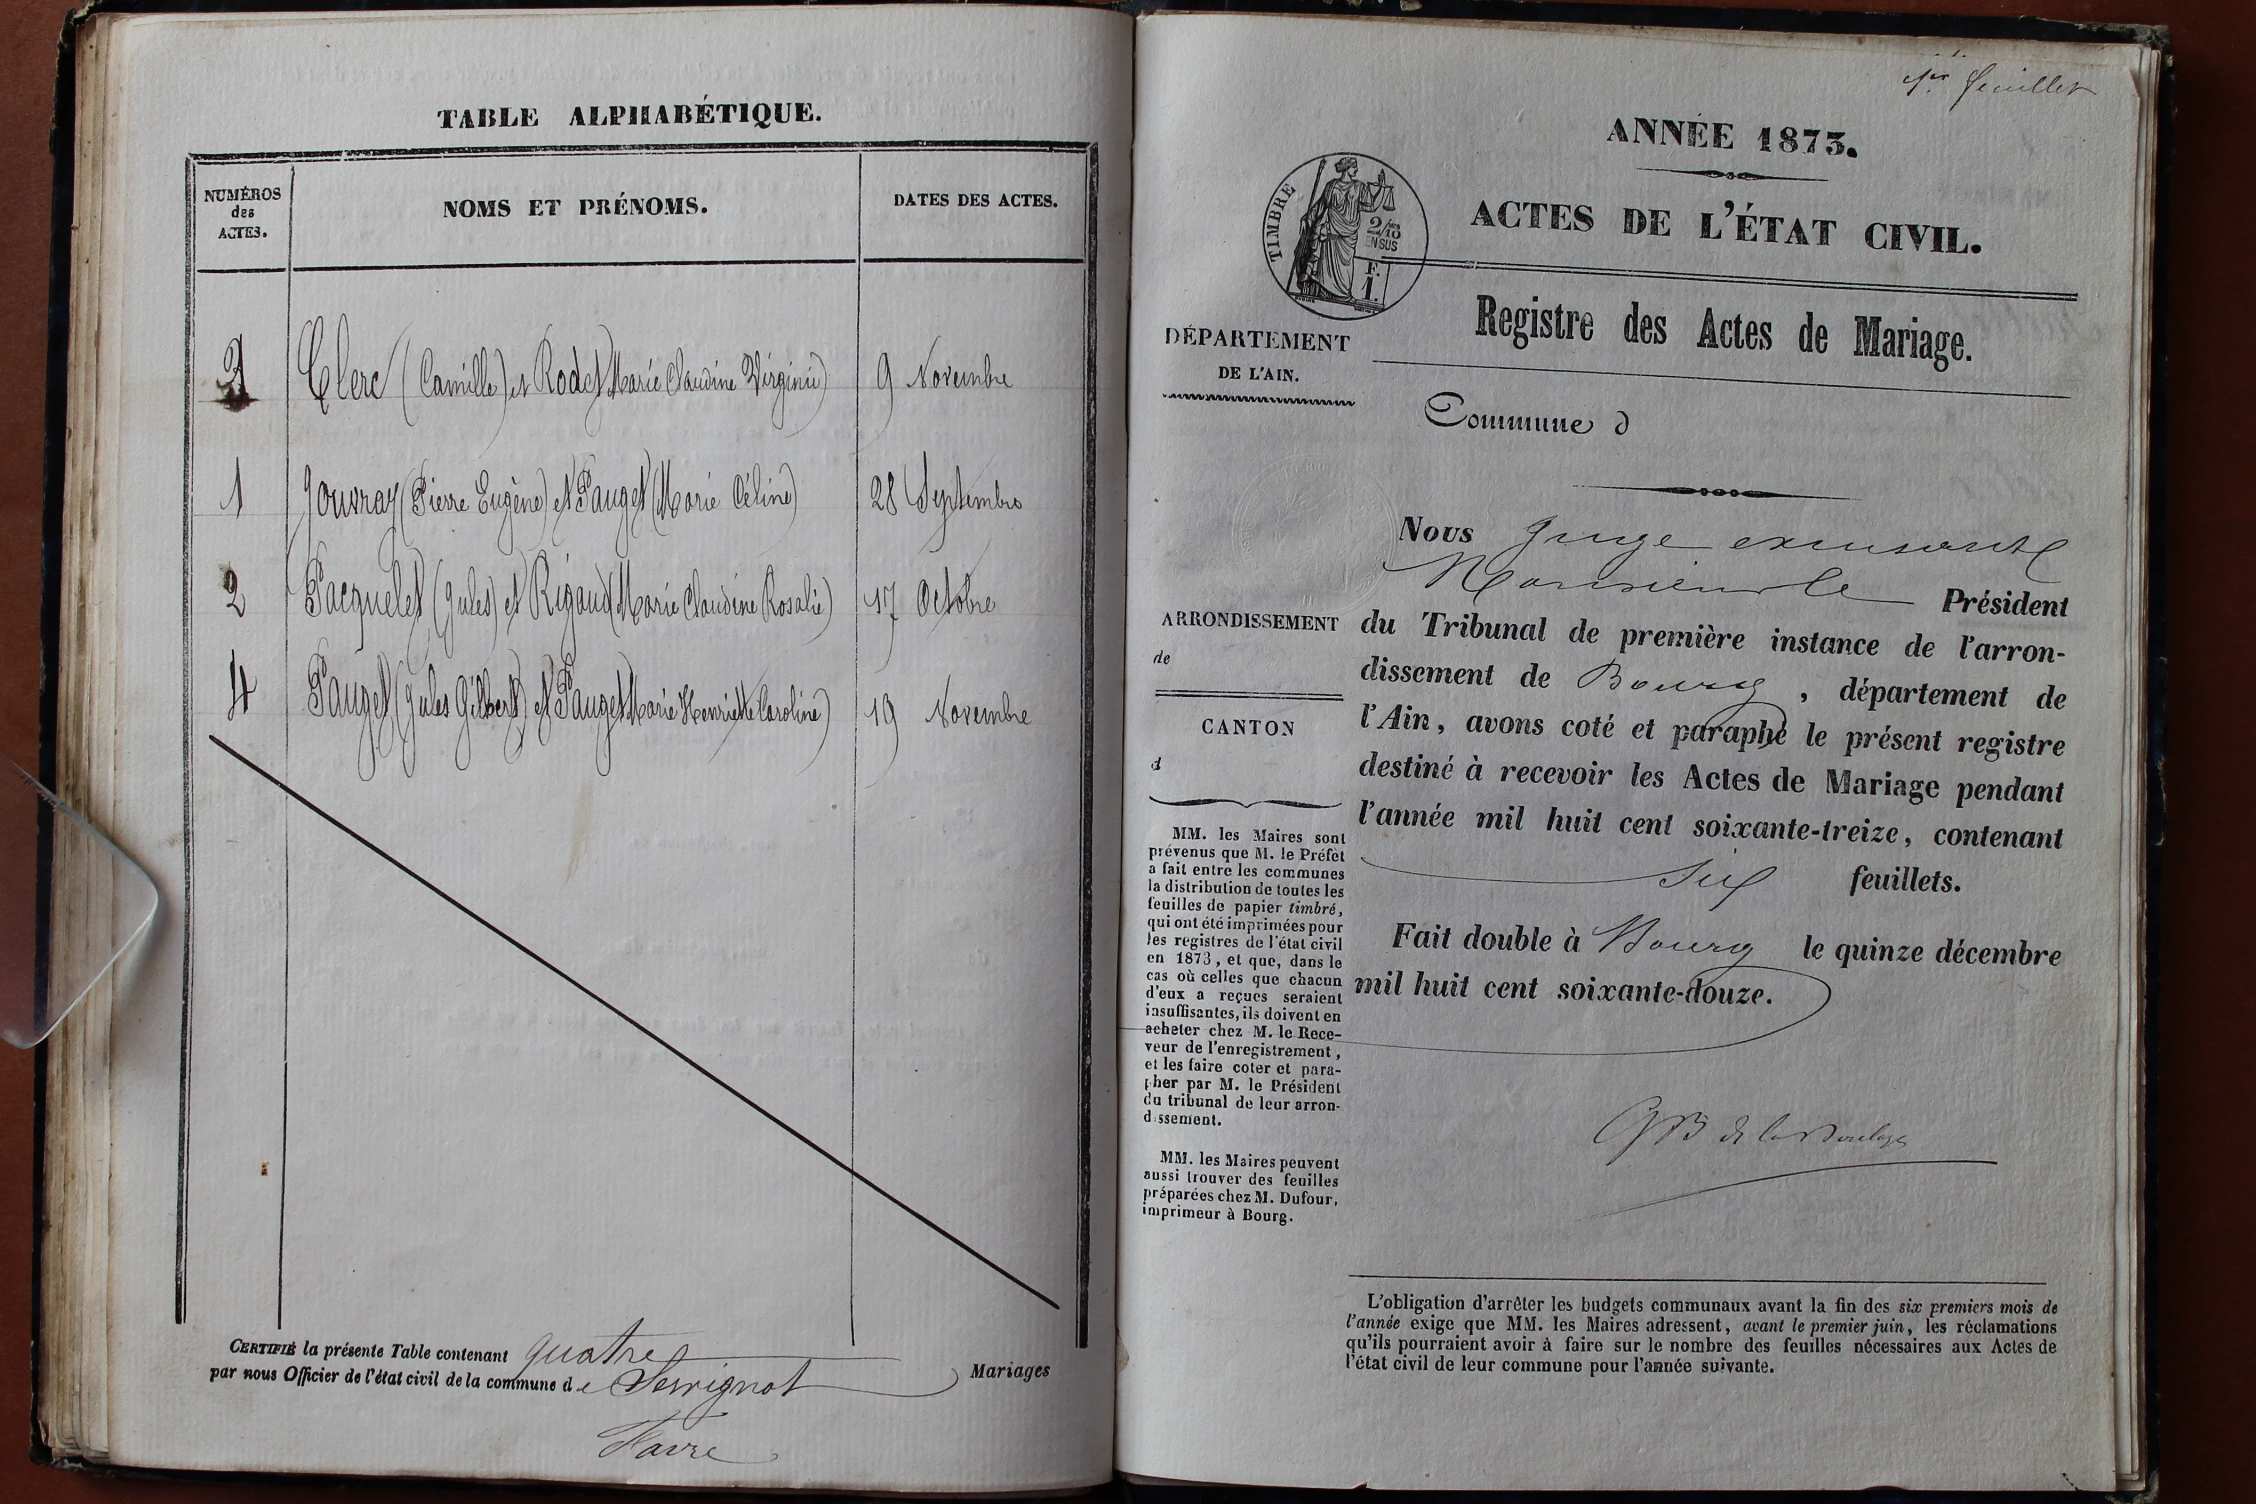 TABLE ALPHABÉTIQUE.
NUMÉROS
des
ACTES.
NOMS ET PRÉNOMS.
DATES DES ACTES.
3 Clerc (Camille) et Rodet (Marie Claudine Virginie) 9 Novembre
1 Jouvray (Pierre Eugène) et Pauget (Marie Céline) 28 Septembre
2 Pacquelet (Jules) et Rigaud (Marie Claudine Rosalie) 17 Octobre
4 Pauget (Jules Gilbert) et Pauget Marie Henriette Caroline) 19 Novembre
CERTIFIÉ la présente Table contenant quatre
par nous Officier de l'état civil de la commune de Servignat Mariages
Favre
1er feuillet
ANNÉE 1873.
ACTES DE L'ÉTAT CIVIL.
TIMBRE
2/10
EN SUS
F.
1.
Registre des Actes de Mariage.
DÉPARTEMENT
DE L'AIN.
Commune d
ARRONDISSEMENT
de
CANTON
d
MM. les Maires sont
prévenus que M. le Préfet
a fait entre les communes
la distribution de toutes les
feuilles de papier timbré,
qui ont été imprimées pour
les registres de l'état civil
en 1873, et que, dans le
cas où celles que chacun
d'eux a reçues seraient
insuffisantes, ils doivent en
acheter chez M. le Rece-
veur de l'enregistrement,
et les faire coter et para-
pher par M. le Président
du tribunal de leur arron-
dissement.
MM. les Maires peuvent
aussi trouver des feuilles
préparées chez M. Dufour,
imprimeur à Bourg.
Nous Juge
Monsieur le Président
du Tribunal de première instance de l'arron-
dissement de Bourg, département de
l'Ain, avons coté et paraphé le présent registre
destiné à recevoir les Actes de Mariage pendant
l'année mil huit cent soixante-treize, contenant
six feuillets.
Fait double à Bourg le quinze décembre
mil huit cent soixante-douze.
L'obligation d'arrêter les budgets communaux avant la fin des six premiers mois de
l'année exige que MM. les Maires adressent, avant le premier juin, les réclamations
qu'ils pourraient avoir à faire sur le nombre des feuilles nécessaires aux Actes de
l'état civil de leur commune pour l'année suivante.